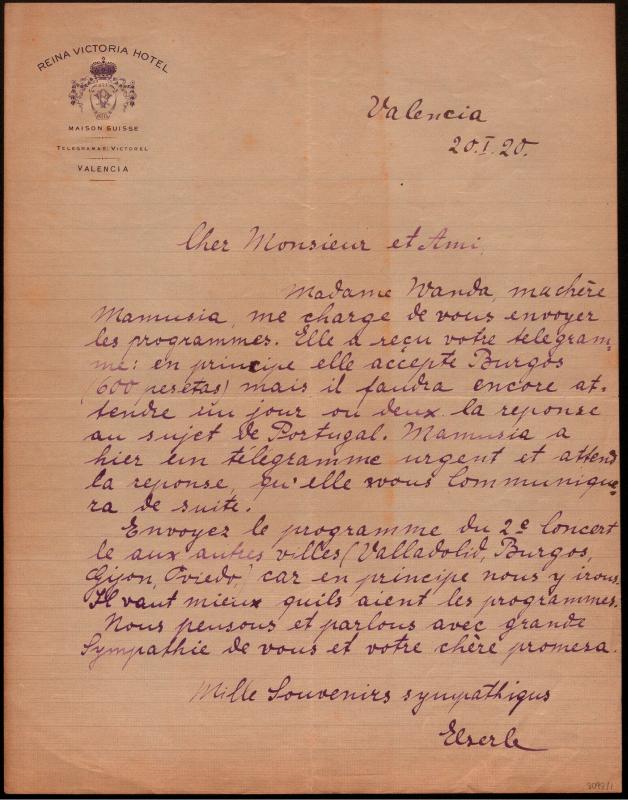 REINA VICTORIA HOTEL
MAISON SUISSE
TELEGRAMAS: VICTOREL
VALENCIA
Valencia
20.I.20.
Cher Monsieur et Ami,
Madame Wanda, ma chère
Mamusia, me charge de vous envoyer
les programmes. Elle a reçu votre telegram-
me: en principe elle accepte Burgos
(600 pesetas) mais il faudra encore at-
tendre un jour ou deux la reponse
au sujet de Portugal. Mamusia a
hier un télégramme urgent et attend
la reponse, qu'elle vous communique-
ra de suite.
Envoyez le programme du 2e Concert
le aux autres villes (Valladolid, Burgos,
Gijon, Oviedo) car en principe nous y irons.
Il vaut mieux quils aient les programmes.
Nous pensons et parlons avec grande
Sympathie de vous et votre chère promesa.
Mille Souvenirs sympathiqus
Elserle
3093/1